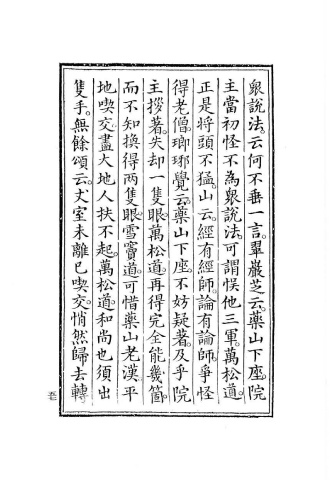 眾說法。云何不垂一言。翠巖芝云。藥山下座。院
主當初怪不為眾說法。可謂悞他三軍。萬松道。
正是將頭不猛。山云。經有經師。論有論師。爭怪
得老僧。瑯琊覺云。藥山下座。不妨疑著。及乎院
主拶著。失却一隻眼。萬松道。再得完全能幾箇。
而不知換得兩隻眼。雪竇道。可惜藥山老漢。平
地喫交。盡大地人扶不起。萬松道。和尚也須出
隻手。無餘頌云。丈室未離已喫交。悄然歸去轉